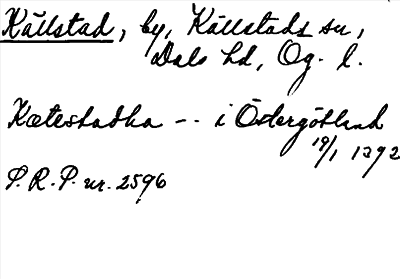 Källstad, by, Källstads sn,
Dals hd, Ög. l.
Kætestadha -- i Östergötland
19/1 1392
S. R. P. nr. 2596